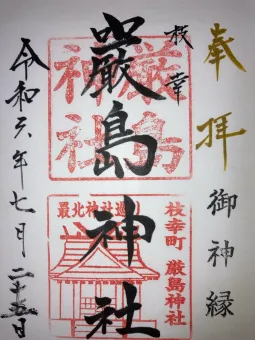 奉拝
御神縁
枝幸
巌島神社
令和六年七月二十五日
厳島神社
最北神社巡
枝幸町 厳島神社